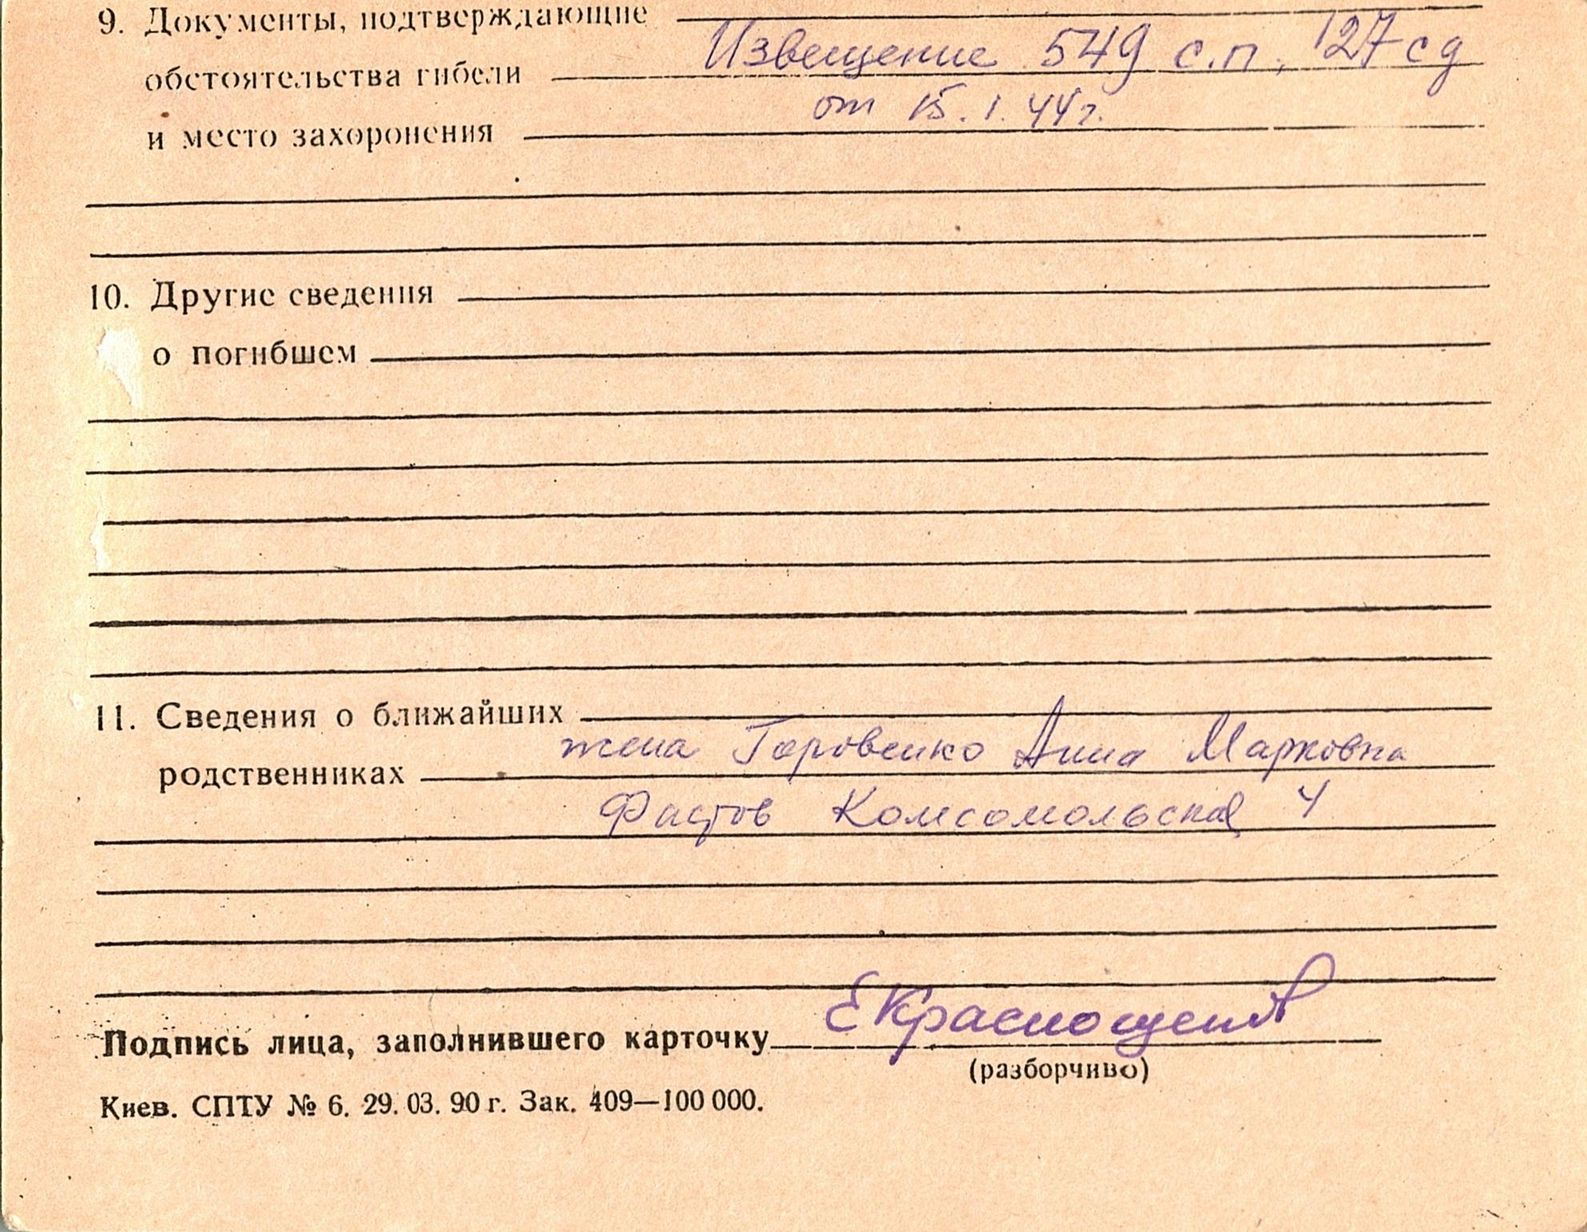 9. Документы, подтверждающие
обстоятельства гибели Извещение 549 с.п, 127 сд
и место захоронения от 15.1.44г.
10. Другие сведения
о погибшем
11. Сведения о ближайших
родственниках жена Горовенко Анна Марковна
Фастов Комсомольская 4
Подпись лица, заполнившего карточку ЕКраснощеков
(разборчиво)
Киев. СПТУ № 6. 29. 03. 90 г. Зак. 409—100 000.